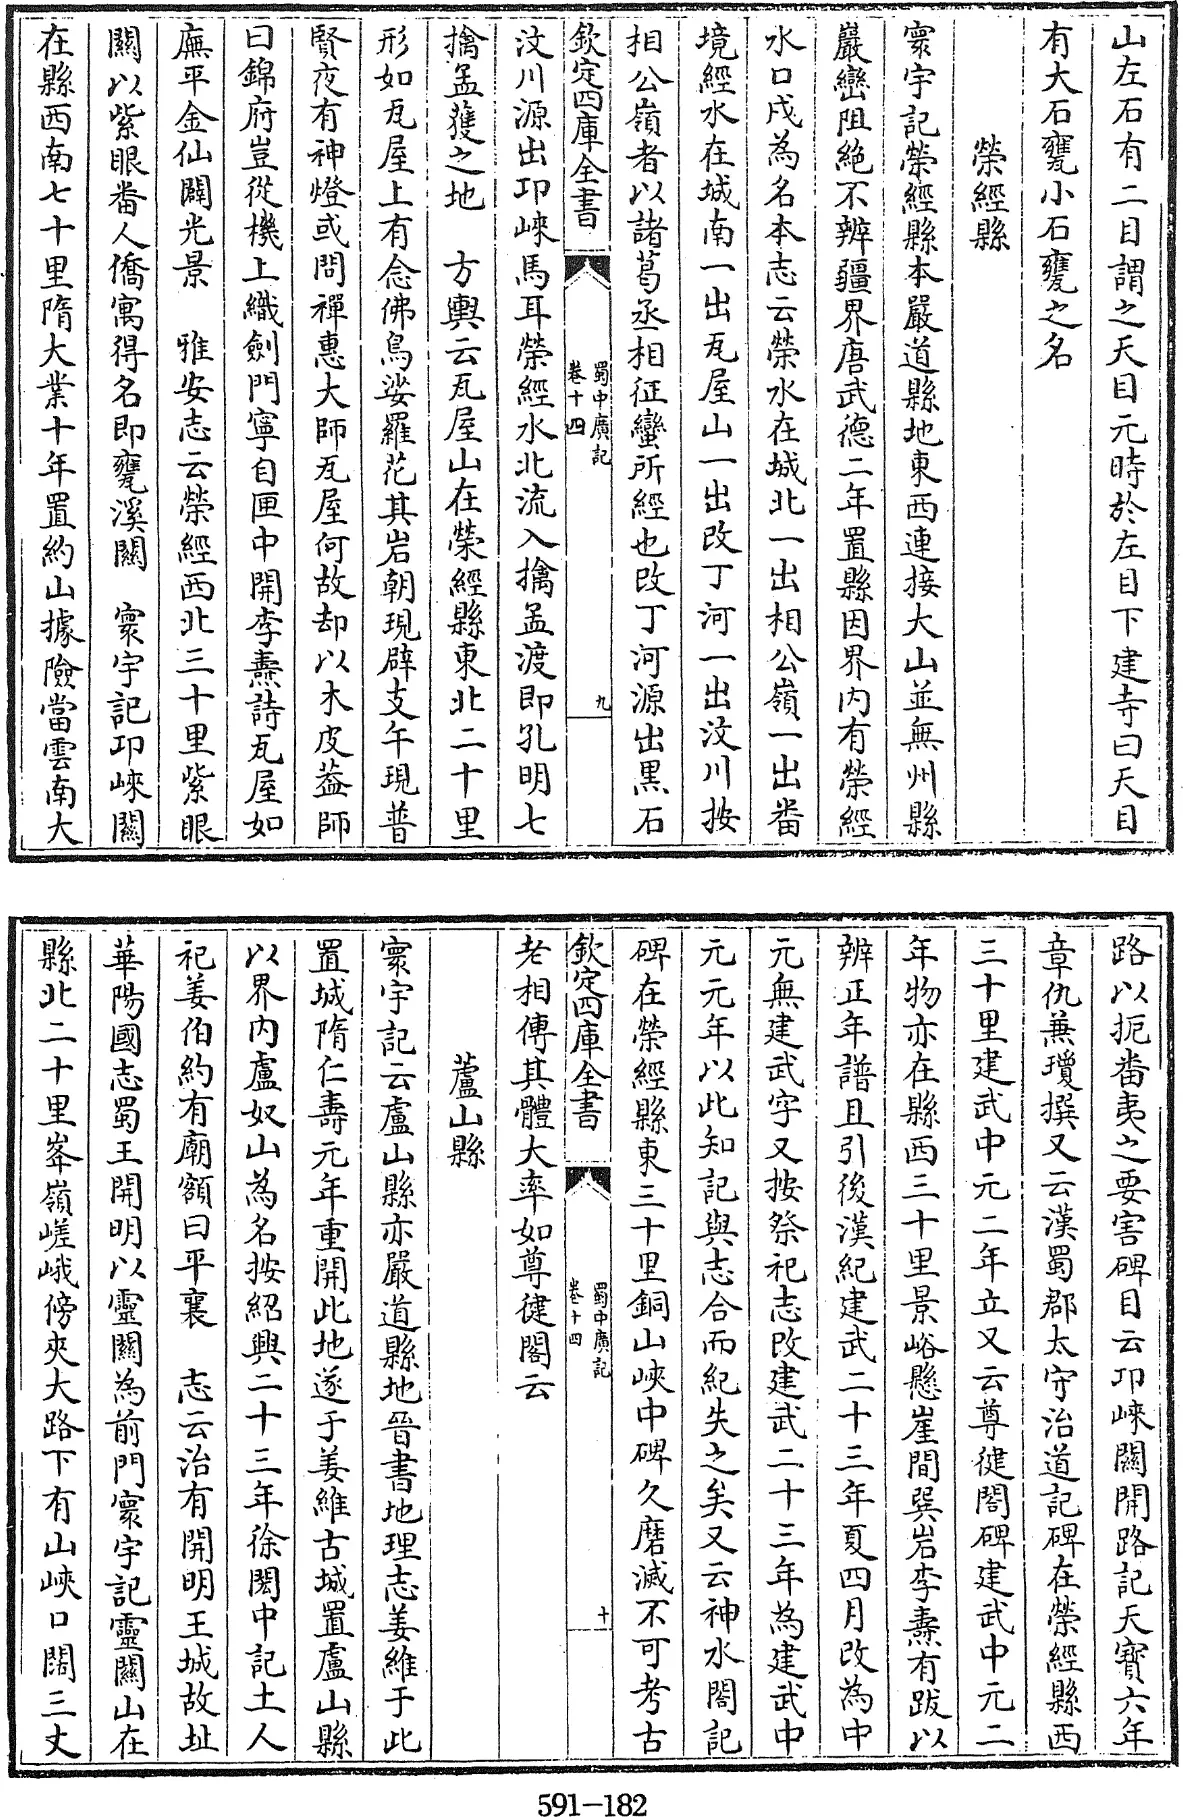 山左石有二目謂之天目元時於左目下建寺曰天目
有大石甕小石甕之名
榮經縣
寰宇記榮經縣本嚴道縣地東西連接大山並無州縣
巖巒阻絶不辨疆界唐武德二年置縣因界内有榮經
水口戍為名本志云榮水在城北一出相公嶺一出畨
境經水在城南一出瓦屋山一出改丁河一出汶川按
相公嶺者以諸葛丞相征蠻所經也改丁河源出黒石
欽定四庫全書
蜀中廣記
卷十四
九
汶川源出卭崍馬耳榮經水北流入擒孟渡即孔明七
擒孟獲之地　方輿云瓦屋山在榮經縣東北二十里
形如瓦屋上有念佛鳥娑羅花其岩朝現辟支午現普
賢夜有神燈或問禪惠大師瓦屋何故却以木皮葢師
曰錦府豈從機上織劍門寧自匣中開李燾詩瓦屋如
廡平金仙闢光景　雅安志云榮經西北三十里紫眼
關以紫眼畨人僑寓得名即甕溪關　寰宇記卭崍關
在縣西南七十里隋大業十年置約山據險當雲南大
路以扼畨夷之要害碑目云卭崍關開路記天寳六年
章仇兼瓊撰又云漢蜀郡太守治道記碑在榮經縣西
三十里建武中元二年立又云尊楗閣碑建武中元二
年物亦在縣西三十里景峪懸崖間巽岩李燾有跋以
辨正年譜且引後漢紀建武二十三年夏四月改為中
元無建武字又按祭祀志改建武二十三年為建武中
元元年以此知記與志合而紀失之矣又云神水閣記
碑在榮經縣東三十里銅山峽中碑久磨滅不可考古
欽定四庫全書
蜀中廣記
卷十四
十
老相傳其體大率如尊楗閣云
蘆山縣
寰宇記云盧山縣亦嚴道縣地晉書地理志姜維于此
置城隋仁壽元年重開此地遂于姜維古城置盧山縣
以界内盧奴山為名按紹興二十三年徐閎中記土人
祀姜伯約有廟額曰平襄　志云治有開明王城故址
華陽國志蜀王開明以靈關為前門寰宇記靈關山在
縣北二十里峯嶺嵯峨傍夾大路下有山峽口闊三丈
591-182